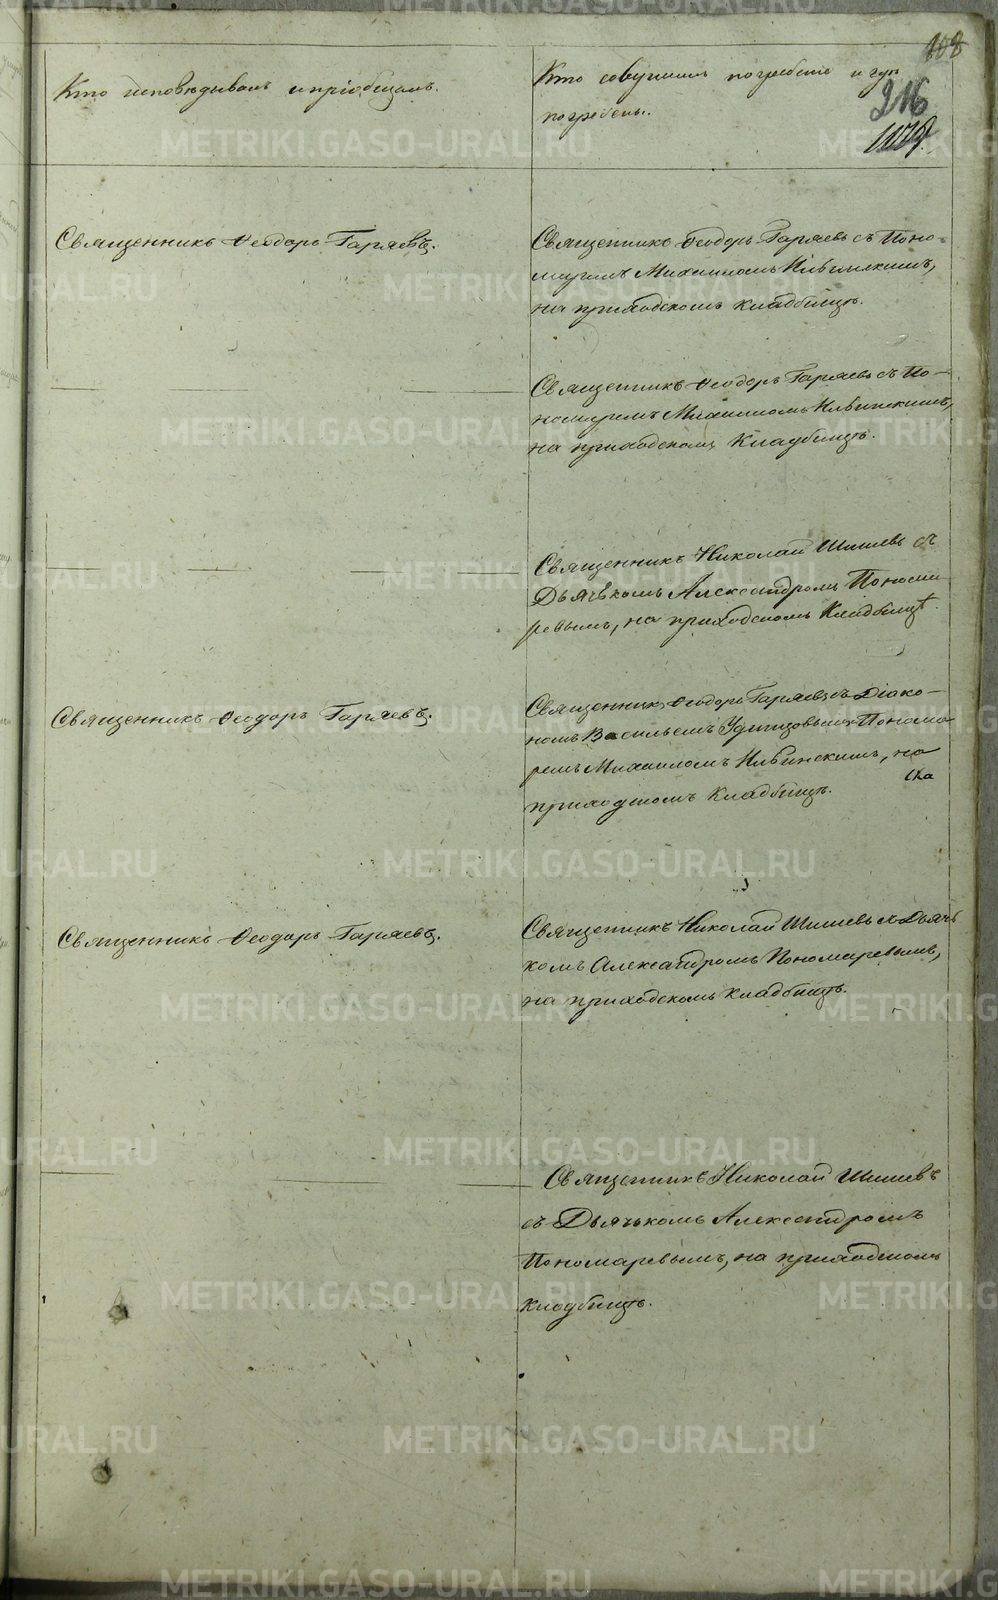 108
Кто исповѣдывалъ и пріобщалъ.
Кто совершилъ погребеніе и гдѣ
погребены.
216
Священникъ Ѳеодоръ Гаряевъ.
Священникъ Ѳеодоръ Гаряевъ съ Поно-
маремъ Михаиломъ Ильинскимъ,
на приходскомъ кладбищѣ.
Священникъ Ѳеодоръ Гаряевъ съ По-
номаремъ Михаиломъ Ильинскимъ,
на приходскомъ Кладбищѣ.
Священникъ Николай Шишевъ съ
Дьячкомъ Александромъ Понома
ревымъ, на приходскомъ Кладбищѣ.
Священникъ Ѳеодоръ Гаряевъ.
Священникъ Ѳеодоръ Гаряевъ съ Діако-
номъ Васильемъ Удинцовымъ Понома
ремъ Михаиломъ Ильинскимъ, на
приходскомъ Кладбищѣ.
Священникъ Ѳеодоръ Гаряевъ.
Священникъ Николай Шишевъ съ Дьяч
комъ Александромъ Пономаревымъ,
на приходскомъ кладбищѣ.
Священникъ Николай Шишевъ
съ Дьячькомъ Александромъ
Пономаревымъ, на приходскомъ
кладбищѣ.
METRIKI.GASO-URAL.RU